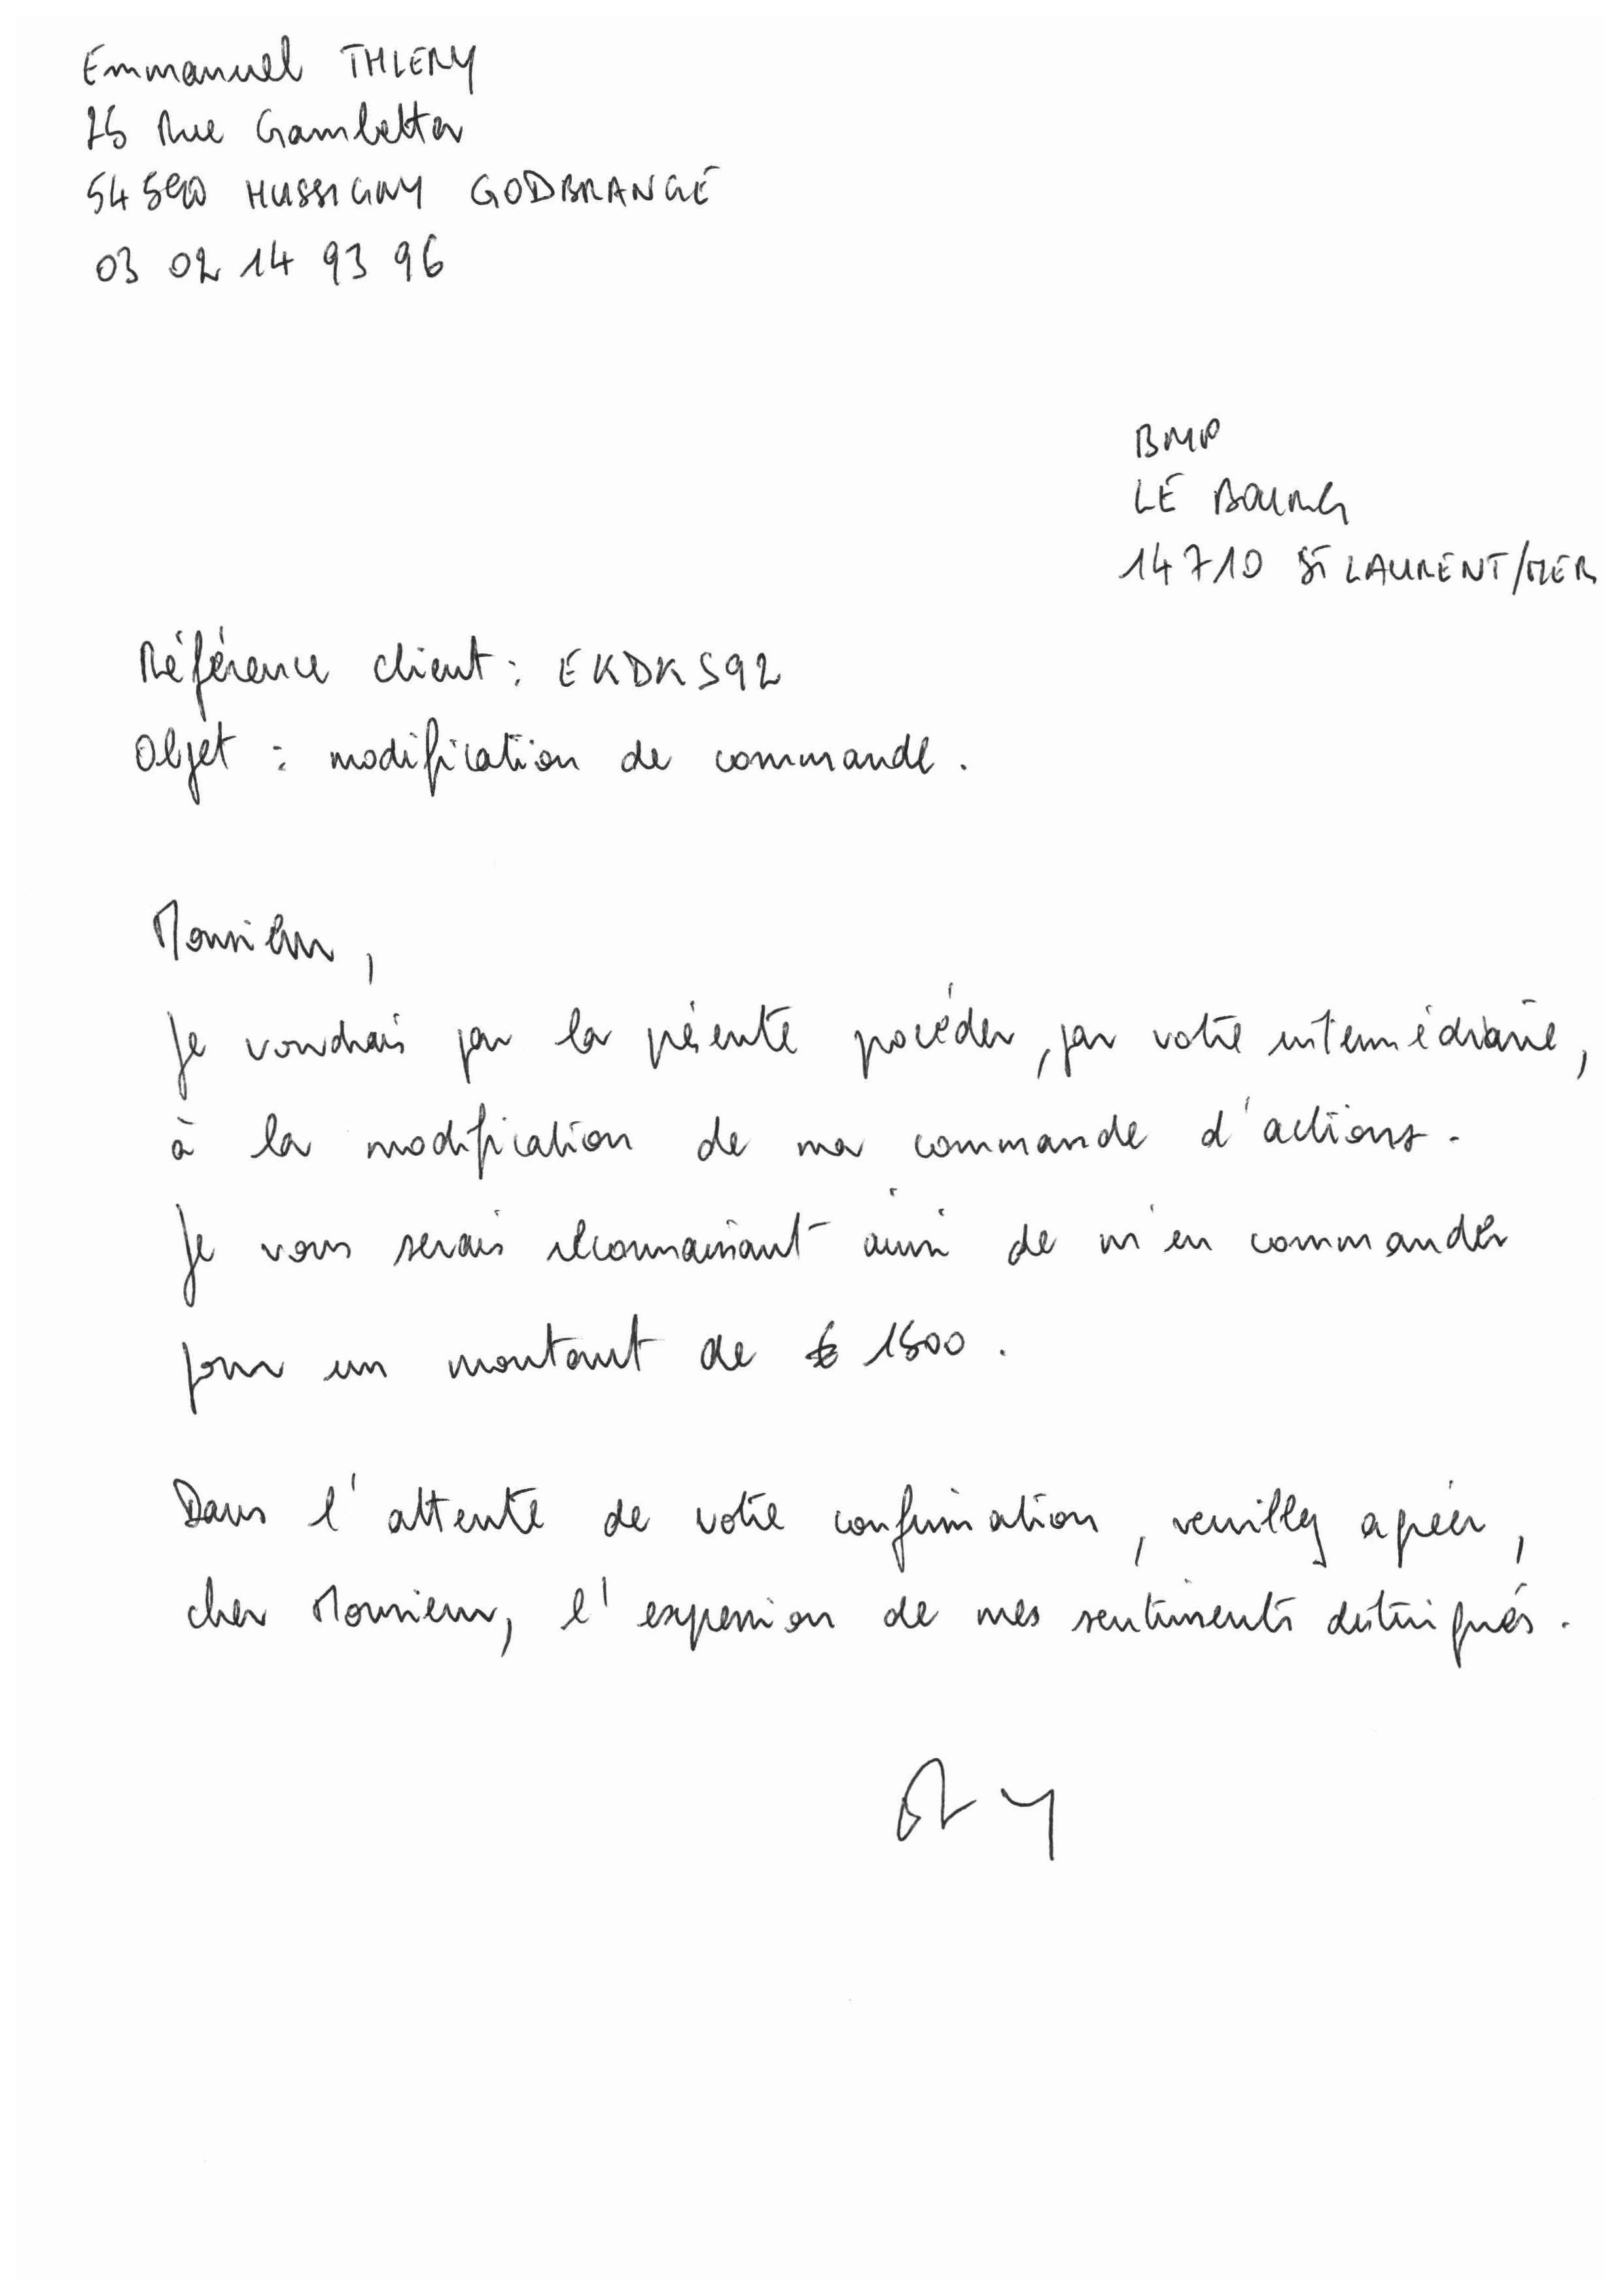 Emmanuel THIERY
25 Rue Gambetta
54590 HUSSIGNY GODBRANGE
03 02 14 93 96
BMP
LE BOURG
14710 ST LAURENT/MER
Référence client : EKDKS92
Objet : modification de commande.
Monsieur,
Je voudrais par la présente procéder, par votre intermédiaire,
à la modification de ma commande d'actions.
Je vous serais reconnaissant ainsi de m'en commander
pour un montant de € 1500.
Dans l'attente de votre confirmation, veuillez agréer,
cher Monsieur, l'expression de mes sentiments distingués.